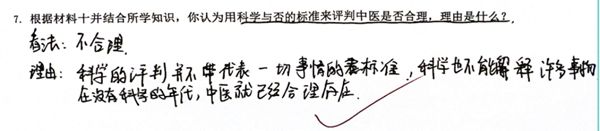 7. 根据材料十并结合所学知识，你认为用科学与否的标准来评判中医是否合理，理由是什么？
看法：不合理.
理由：科学的评判并不代表一切事情的标准，科学也不能解释许多事物
在没有科学的年代，中医就已经合理存在.